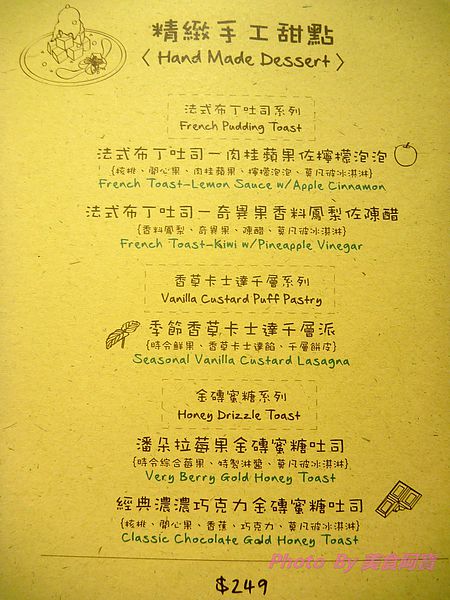 精緻手工甜點
〈 Hand Made Dessert 〉
法式布丁吐司系列
French Pudding Toast
法式布丁吐司－肉桂蘋果佐檸檬泡泡
{核桃、開心果、肉桂蘋果、檸檬泡泡、莫凡彼冰淇淋}
French Toast-Lemon Sauce w/Apple Cinnamon
法式布丁吐司－奇異果香料鳳梨佐陳醋
{香料鳳梨、奇異果、陳醋、莫凡彼冰淇淋}
French Toast-Kiwi w/Pineapple Vinegar
香草卡士達千層系列
Vanilla Custard Puff Pastry
季節香草卡士達千層派
{時令鮮果、香草卡士達餡、千層餅皮}
Seasonal Vanilla Custard Lasagna
金磚蜜糖系列
Honey Drizzle Toast
潘朵拉莓果金磚蜜糖吐司
{時令綜合莓果、特製淋醬、莫凡彼冰淇淋}
Very Berry Gold Honey Toast
經典濃濃巧克力金磚蜜糖吐司
{核桃、開心果、香蕉、巧克力、莫凡彼冰淇淋}
Classic Chocolate Gold Honey Toast
Photo By 美食阿吉
$249